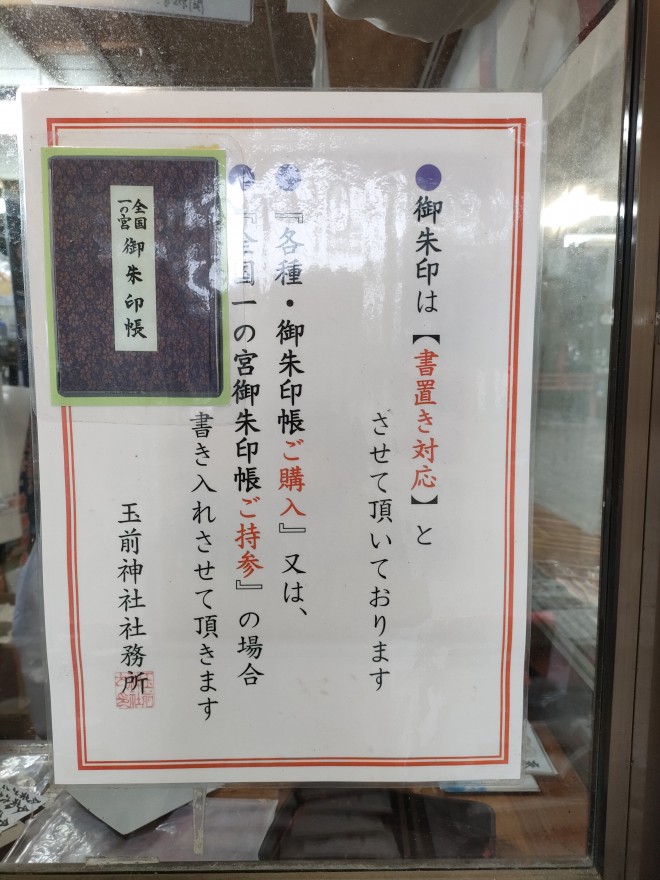 ●御朱印は【書置き対応】と
させて頂いております
●『各種・御朱印帳ご購入』又は、
●『全国一の宮御朱印帳ご持参』の場合
書き入れさせて頂きます
玉前神社社務所
全国
一の宮
御朱印帳